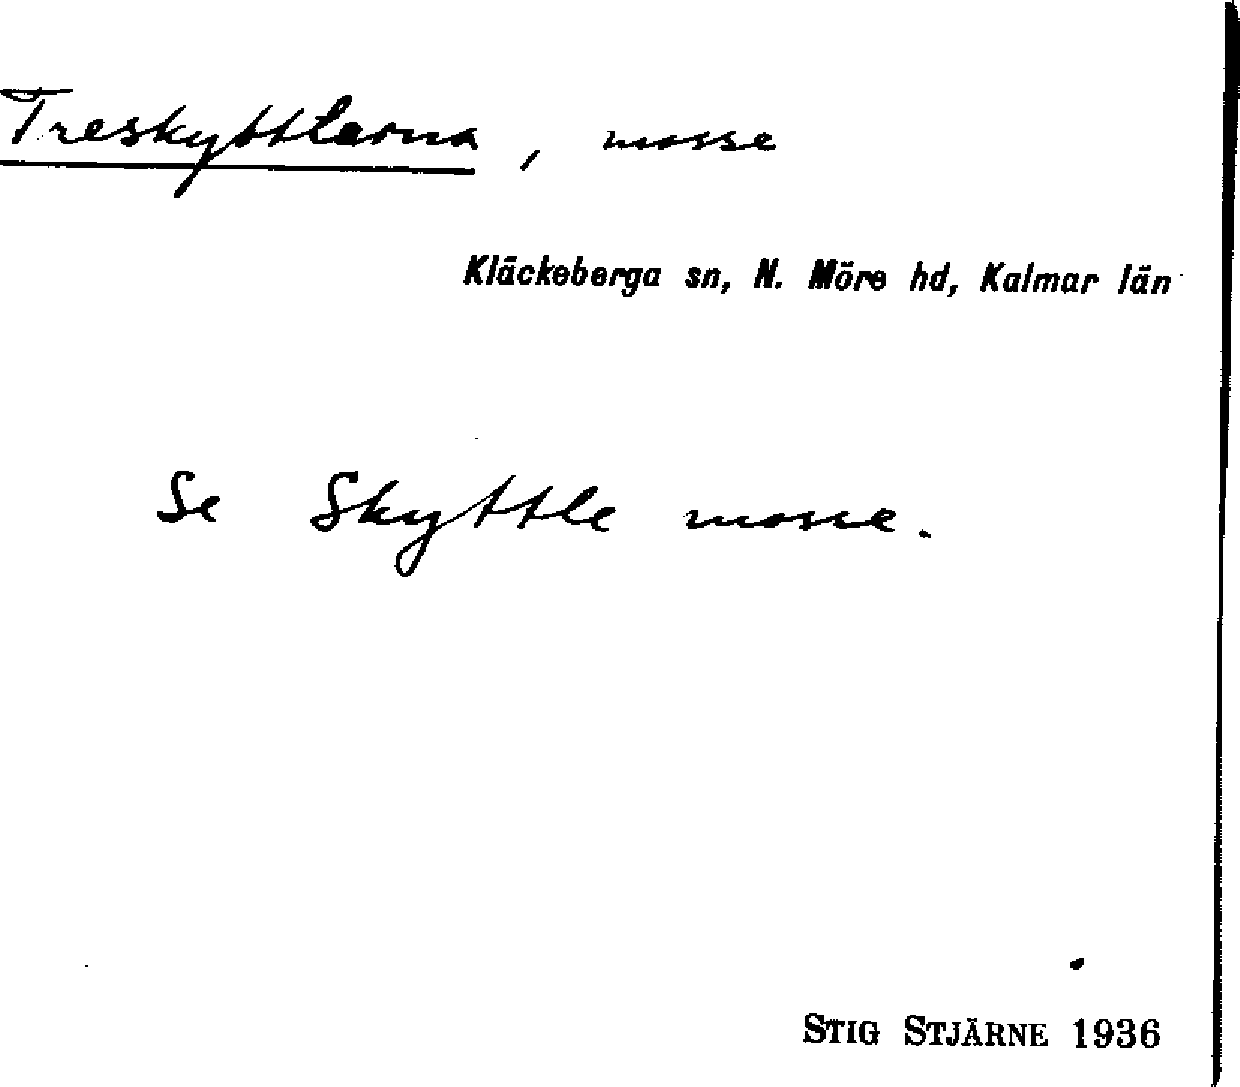 Treskyttlarna, mosse
Kläckeberga sn, N. Möre hd, Kalmar län
Se Skyttle mosse.
STIG STJÄRNE 1936